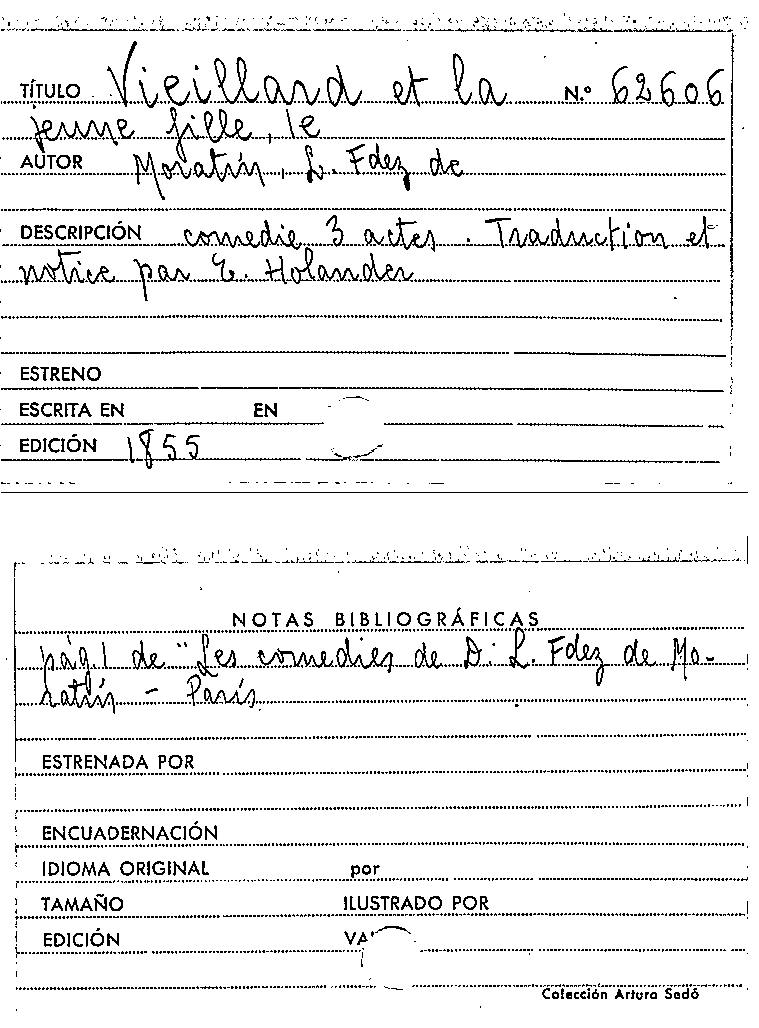 TÍTULO Vieillard et la N.º 62606
jeune fille, le
AUTOR Moratín, L. Fdez de
DESCRIPCIÓN comedie 3 actes. Traduction et
notice par E. Holander
ESTRENO
ESCRITA EN EN
EDICIÓN 1855
NOTAS BIBLIOGRÁFICAS
pág. 1 de "Les comedies de D. L. Fdez de Mo-
ratín - París
ESTRENADA POR
ENCUADERNACIÓN
IDIOMA ORIGINAL por
TAMAÑO ILUSTRADO POR
EDICIÓN
Colección Arturo Sedó